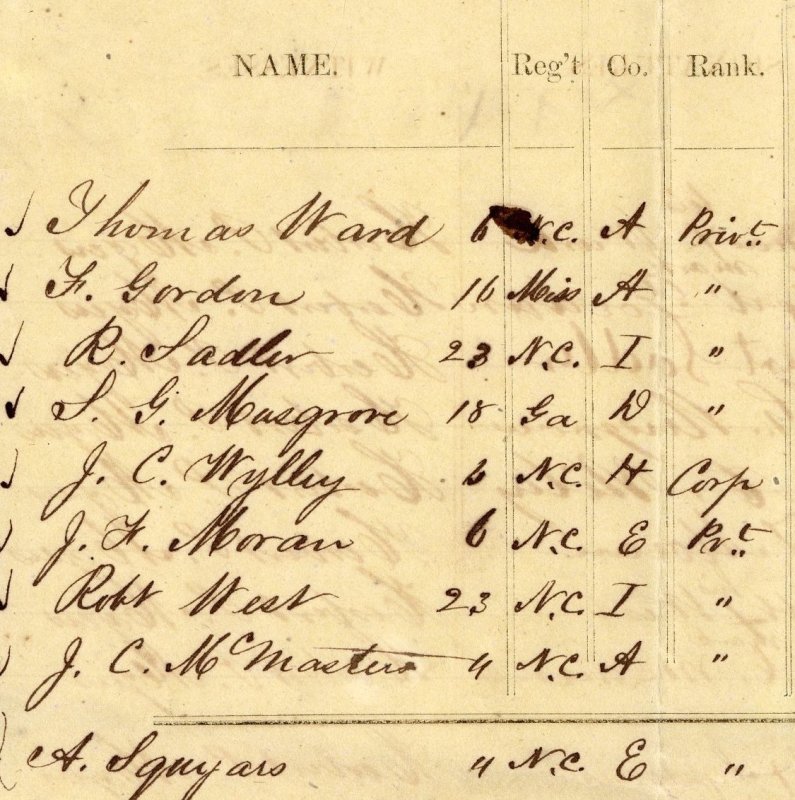 NAME. Reg't Co. Rank.
Thomas Ward 6 N.C. A Privt.
F. Gordon 16 Miss A "
R. Sadler 23 N.C. I "
S. G. Musgrove 18 Ga D "
J. C. Wylley 6 N.C. H Corp
J. F. Moran 6 N.C. E Prvt.
Robt West 23 N.C. I "
J. C. McMasters " N.C. A "
A. Squyars " N.C. E "